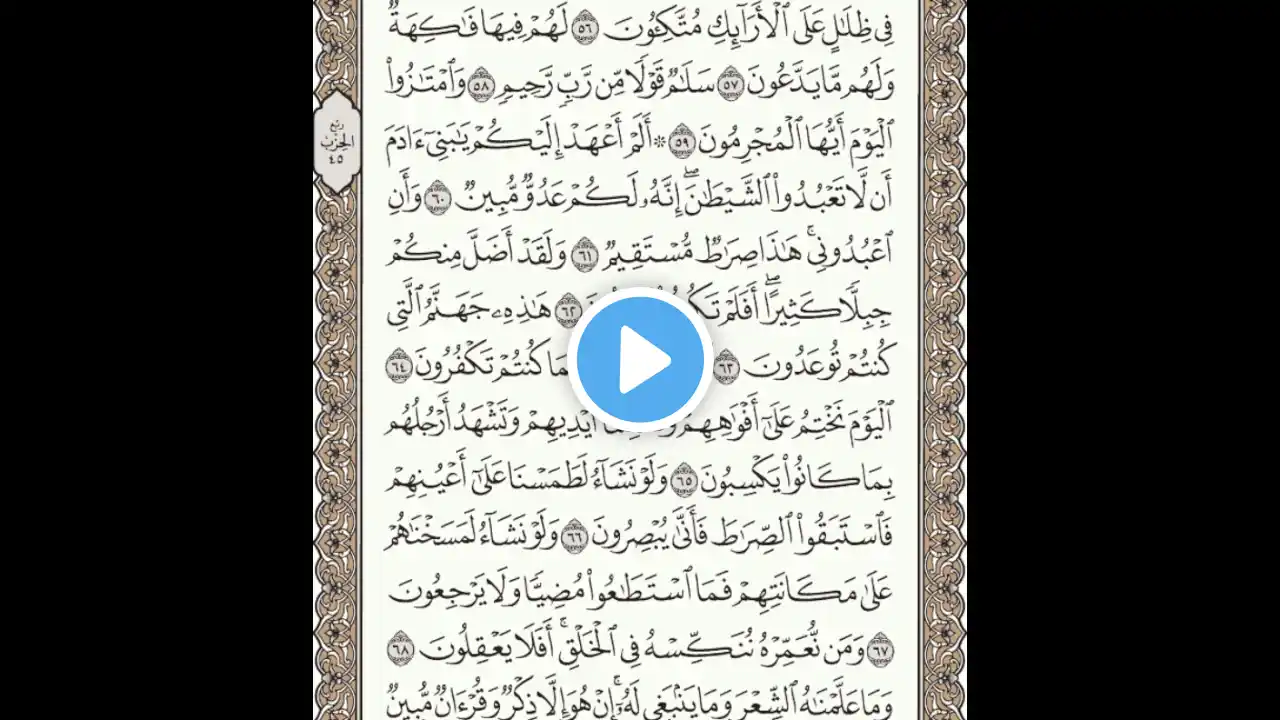 فِي ظِلَٰلٍ عَلَى ٱلْأَرَآئِكِ مُتَّكِـُٔونَ ٥٦ لَهُمْ فِيهَا فَٰكِهَةٌ
وَلَهُم مَّا يَدَّعُونَ ٥٧ سَلَٰمٌ قَوْلًا مِّن رَّبٍّ رَّحِيمٍ ٥٨ وَٱمْتَٰزُوا۟
ٱلْيَوْمَ أَيُّهَا ٱلْمُجْرِمُونَ ٥٩ ۞ أَلَمْ أَعْهَدْ إِلَيْكُمْ يَٰبَنِىٓ ءَادَمَ
أَن لَّا تَعْبُدُوا۟ ٱلشَّيْطَٰنَۖ إِنَّهُۥ لَكُمْ عَدُوٌّ مُّبِينٌ ٦٠ وَأَنِ
ٱعْبُدُونِىۚ هَٰذَا صِرَٰطٌ مُّسْتَقِيمٌ ٦١ وَلَقَدْ أَضَلَّ مِنكُمْ
جِبِلًّا كَثِيرًاۖ أَفَلَمْ ٦٢ هَٰذِهِۦ جَهَنَّمُ ٱلَّتِى
كُنتُمْ تُوعَدُونَ ٦٣ كُنتُمْ تَكْفُرُونَ ٦٤
ٱلْيَوْمَ نَخْتِمُ عَلَىٰٓ أَفْوَٰهِهِمْ أَيْدِيهِمْ وَتَشْهَدُ أَرْجُلُهُم
بِمَا كَانُوا۟ يَكْسِبُونَ ٦٥ وَلَوْ نَشَآءُ لَطَمَسْنَا عَلَىٰٓ أَعْيُنِهِمْ
فَٱسْتَبَقُوا۟ ٱلصِّرَٰطَ فَأَنَّىٰ يُبْصِرُونَ ٦٦ وَلَوْ نَشَآءُ لَمَسَخْنَٰهُمْ
عَلَىٰ مَكَانَتِهِمْ فَمَا ٱسْتَطَٰعُوا۟ مُضِيًّا وَلَا يَرْجِعُونَ
٦٧ وَمَن نُّعَمِّرْهُ نُنَكِّسْهُ فِى ٱلْخَلْقِۚ أَفَلَا يَعْقِلُونَ ٦٨
وَمَا عَلَّمْنَٰهُ ٱلشِّعْرَ وَمَا يَنۢبَغِى لَهُۥٓۚ إِنْ هُوَ إِلَّا ذِكْرٌ وَقُرْءَانٌ مُّبِينٌ
رُبع
الحِزْب
٤٥